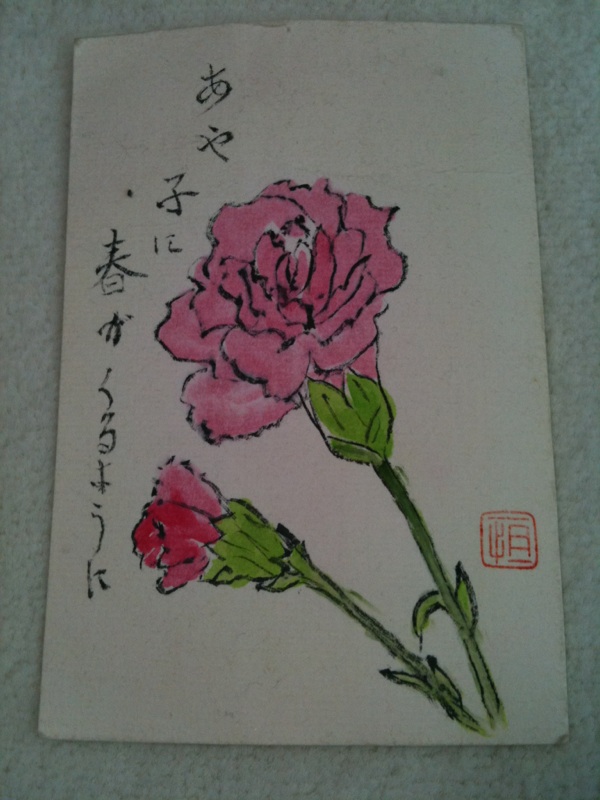 あや子に
春がくるように
恒